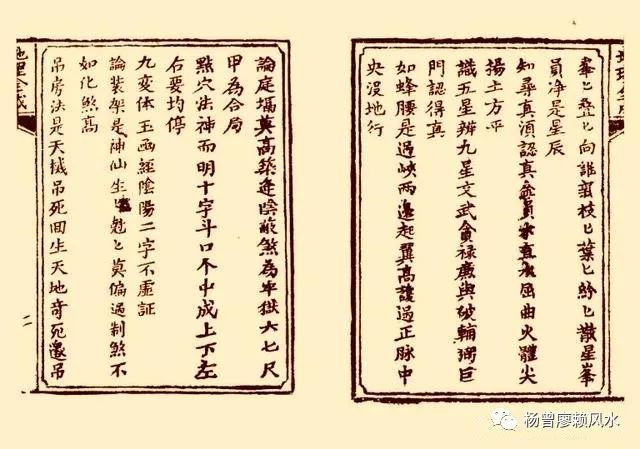 地理全
峯匕叠匕向誰枝匕葉匕紛匕散星峯
員净是星辰
知尋真湏認真員木直水屈曲火體尖
揚土方平
識五星辨九星文武貪禄廉與破輔弼巨
門認得真
如蜂腰是過峽兩邊起翼高護過正脉中
央沒地行
論庭塌莫高築逢陰蔽煞為牢獄六七尺
甲為合局
點穴法神而明十字斗口不中成上下左
右要均停
九变体玉函經陰陽二字不虛証
論装架是神仙生匕尅匕莫偏過制煞不
如化煞高
吊房法是天機吊死回生天地奇死邊吊
地理全成
二
杨曾廖赖风水